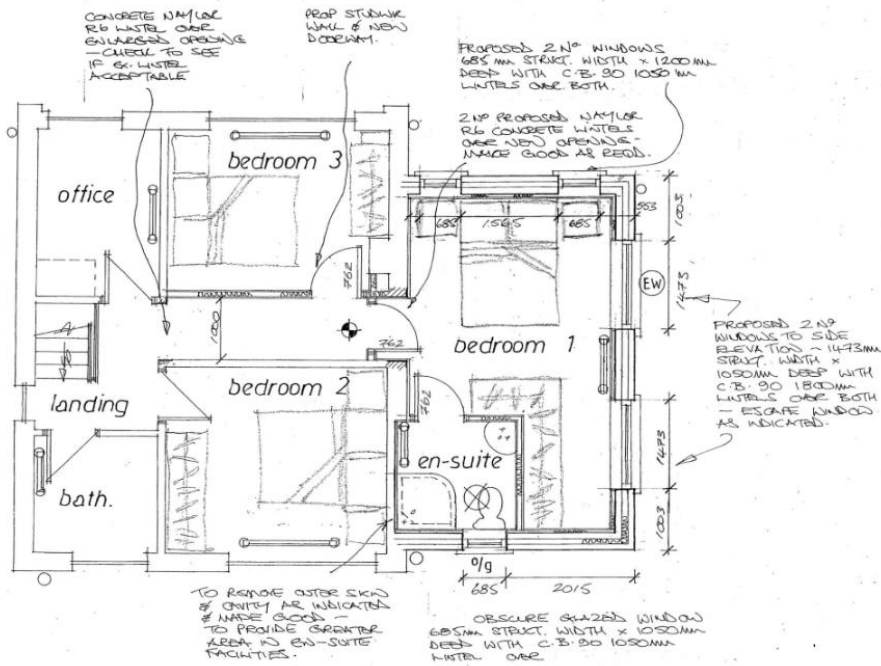 CONCRETE NAYLOR
R6 LINTEL OVER
ENLARGED OPENING
- CHECK TO SEE
IF EX. LINTEL
ACCEPTABLE
PROP STUDWK
WALL & NEW
DOORWAY.
PROPOSED 2 Nº WINDOWS
685 mm STRUCT. WIDTH x 1200 mm
DEEP WITH C.B. 90 1050 mm
LINTELS OVER BOTH.
2 Nº PROPOSED NAYLOR
R6 CONCRETE LINTELS
OVER NEW OPENING -
MAKE GOOD AS REQD.
office
bedroom 3
685
1565
685
553
1003
762
EW
1473
1000
762
bedroom 1
PROPOSED 2 Nº
WINDOWS TO SIDE
ELEVATION - 1473mm
STRUCT. WIDTH x
1050mm DEEP WITH
C.B. 90 1800mm
LINTELS OVER BOTH
- ESCAPE WINDOW
AS INDICATED.
landing
bedroom 2
762
en-suite
1473
bath.
1003
o/g
685
2015
TO REMOVE OUTER SKIN
& CAVITY AS INDICATED
& MADE GOOD -
TO PROVIDE GREATER
AREA IN EN-SUITE
FACILITIES.
OBSCURE GLAZED WINDOW
685mm STRUCT. WIDTH x 1050mm
DEEP WITH C.B. 90 1050mm
LINTEL OVER